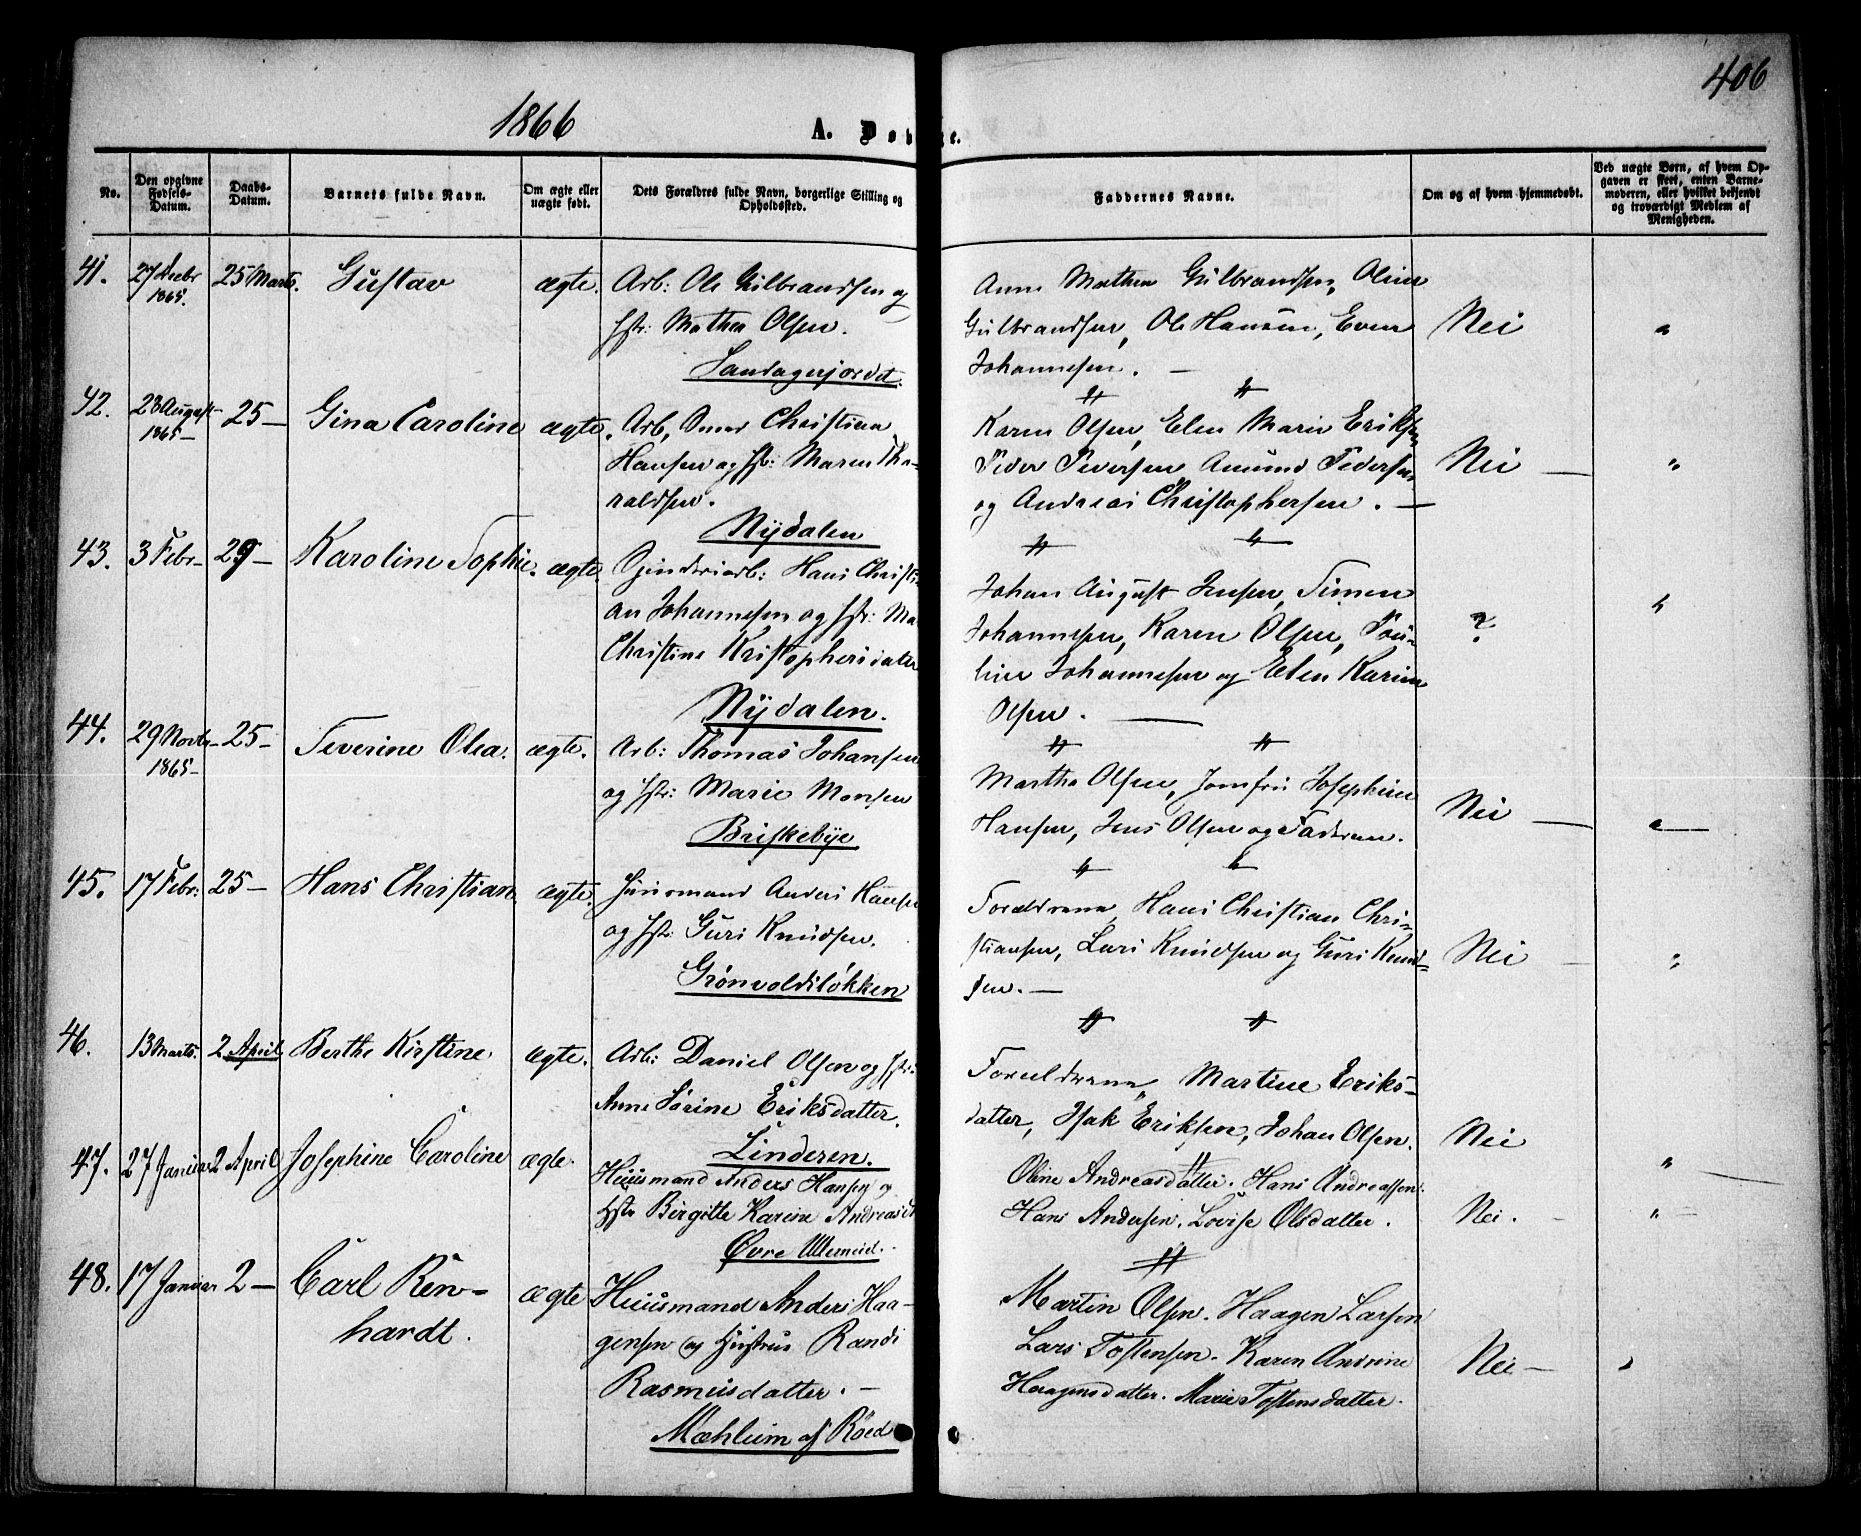 406
1866
A. Døb
te.
No.
Den opgivne Fødsels-Datum.
Daabs-Datum.
Barnets fulde Navn.
Om ægte eller uægte født.
Dets Forældres fulde Navn, borgerlige Stilling og Opholdssted.
Faddernes Navne.
Om og af hvem hjemmedøbt.
Ved uægte Børn, af hvem Opgaven er skeet, enten Barnemoderen, eller hvilket bekjendt og troværdigt Medlem af Menigheden.
41. 27 Decbr 1865. 25 Marts. Gustav ægte. Arb: Ole Gulbrandsen og
Hstr: Mathea Olsen.
Anne Mathea Gulbrandsen, Oline
Gulbrandsen, Ole Hansen, Even
Johannesen. —
Nei "
42. 28 August 1865 — 25 — Gina Caroline ægte. Arb, Christian
Hansen og Hstr: Maren Tha-
raldsen.
Nydalen
Karen Olsen, Elen Marie Eriksen
Peder Pedersen Amund Pedersen
og Andreas Christophersen. —
Nei — "
43. 3 Febr — 25 — Karoline Sophie. ægte Spinderiarb: Hans Christi-
an Johannesen og Hstr: Ma
Christine Kristophersdatter
Nydalen.
Johan August Jensen, Simen
Johannesen, Karen Olsen, Pau-
line Johannesen og Elen Karine
Olsen. —
? "
44. 29 Novbr 1865 — 25 — Severine Olea. ægte. Arb: Thomas Johansen
og Hstr: Marie Monsen
Briskebye
Martha Olsen, Jomfru Josephine
Hansen, Jens Olsen og Faderen.
Nei — "
45. 17 Febr: 25 — Hans Christian ægte. Huusmand Anders Hansen
og Hstr: Guri Knudsen.
Grønvoldsløkken
Forældrene, Hans Christian Chri-
stiansen, Lars Knudsen og Guri Knud-
sen. —
Nei — "
46. 13 Marts. 2 April Berthe Kirstine ægte. Arb: Daniel Olsen og Hstr:
Anne Sørine Eriksdatter.
Linderen.
Forældrene, Martine Eriks-
datter, Isak Eriksen, Johan Olsen.
Nei "
47. 27 Januar 2 April Josephine Caroline ægte. Huusmand Anders Hansen og
Hstr Birgitte Karine Andreasd
Øvre Ullerneiel.
Oline Andreasdatter. Hans Andreassen.
Hans Andersen. Lovise Olsdatter.
Nei. — "
48. 17 Januar 2 — Carl Ren-
hardt.
ægte Huusmand Anders Haa-
gensen og Hustrue Randi
Rasmusdatter. —
Mæhlum af Røed
Martin Olsen. Haagen Larsen
Lars Tostensen. Karen Andrine
Haagensdatter. Marie Tostensdatter.
Nei — "